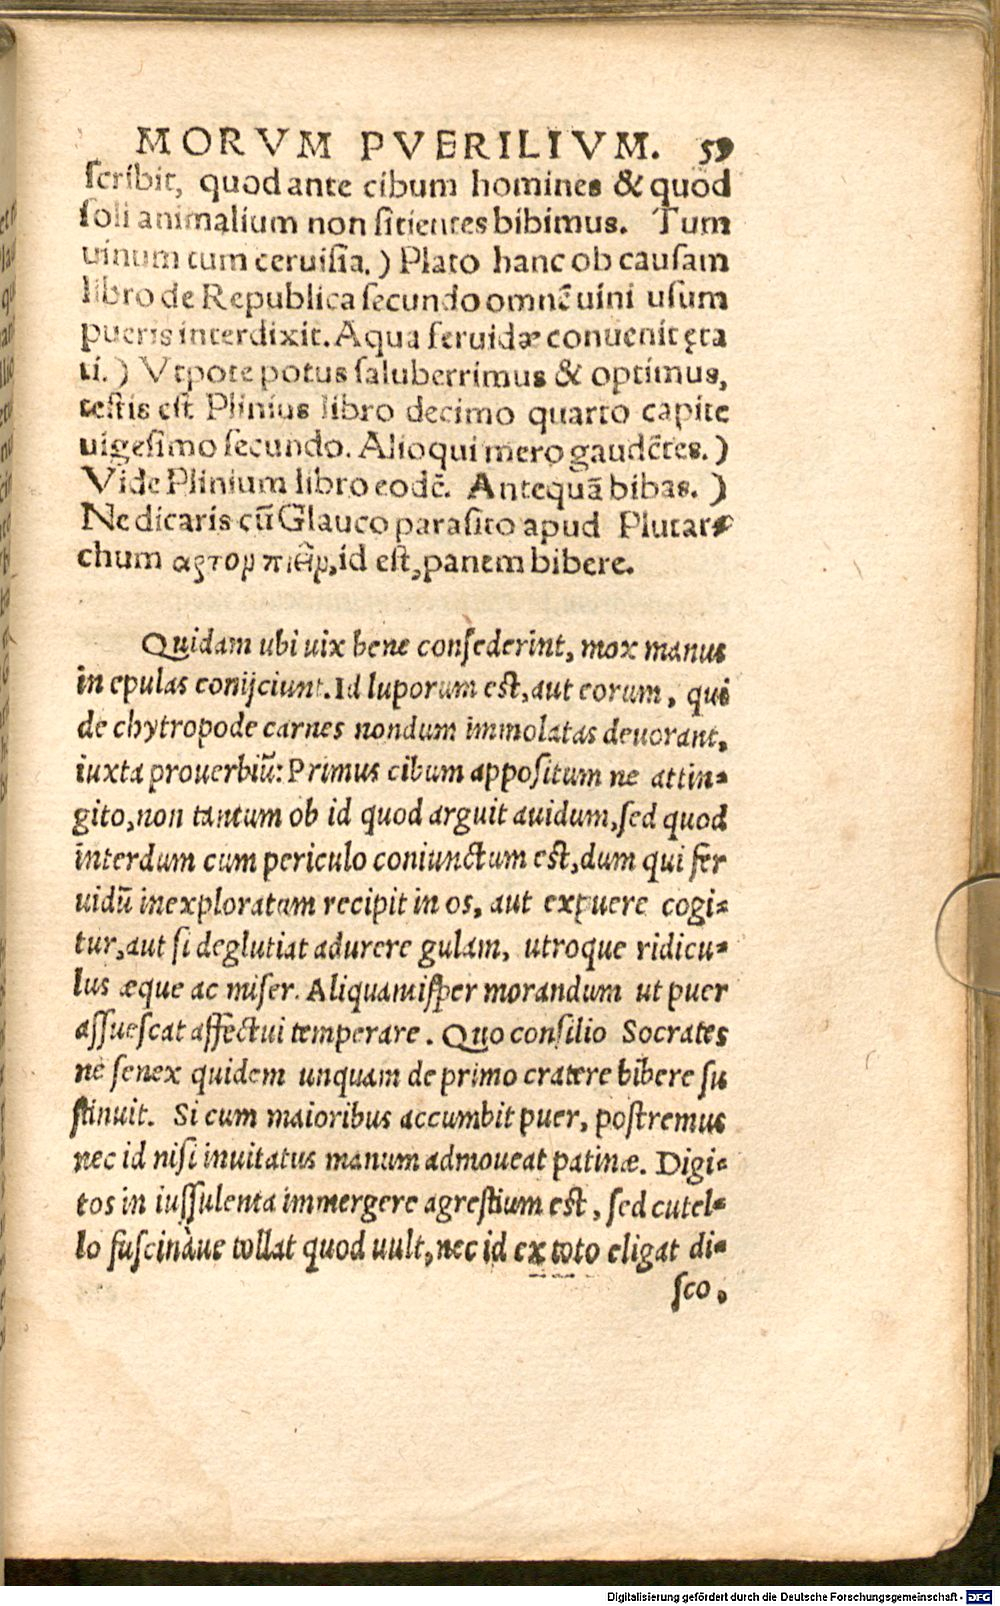 MORVM PVERILIVM. 59
scribit, quod ante cibum homines & quod
soli animalium non sitientes bibimus. Tum
uinum tum ceruisia.) Plato hanc ob causam
libro de Republica secundo omnē uini usum
pueris interdixit. Aqua feruidæ conuenit ęta
ti.) Vtpote potus saluberrimus & optimus,
testis est Plinius libro decimo quarto capite
uigesimo secundo. Alioqui mero gaudētes.)
Vide Plinium libro eodē. Antequā bibas.)
Ne dicaris cū Glauco parasito apud Plutar⸗
chum αςτορ πιεῖρ, id est, panem bibere.
Quidam ubi uix bene consederint, mox manus
in epulas conijciunt. Id luporum est, aut eorum, qui
de chytropode carnes nondum immolatas deuorant,
iuxta prouerbiū: Primus cibum appositum ne attin⸗
gito, non tantum ob id quod arguit auidum, sed quod
interdum cum periculo coniunctum est, dum qui fer
uidū inexploratum recipit in os, aut expuere cogi⸗
tur, aut si deglutiat adurere gulam, utroque ridicu⸗
lus æque ac miser. Aliquamisper morandum ut puer
assuescat affectui temperare. Quo consilio Socrates
ne senex quidem unquam de primo cratere bibere su
stinuit. Si cum maioribus accumbit puer, postremus
nec id nisi inuitatus manum admoueat patinæ. Digi⸗
tos in iussulenta immergere agrestium est, sed cutel⸗
lo fuscinàue tollat quod uult, nec id ex toto eligat di⸗
sco,
Digitalisierung gefördert durch die Deutsche Forschungsgemeinschaft - DFG